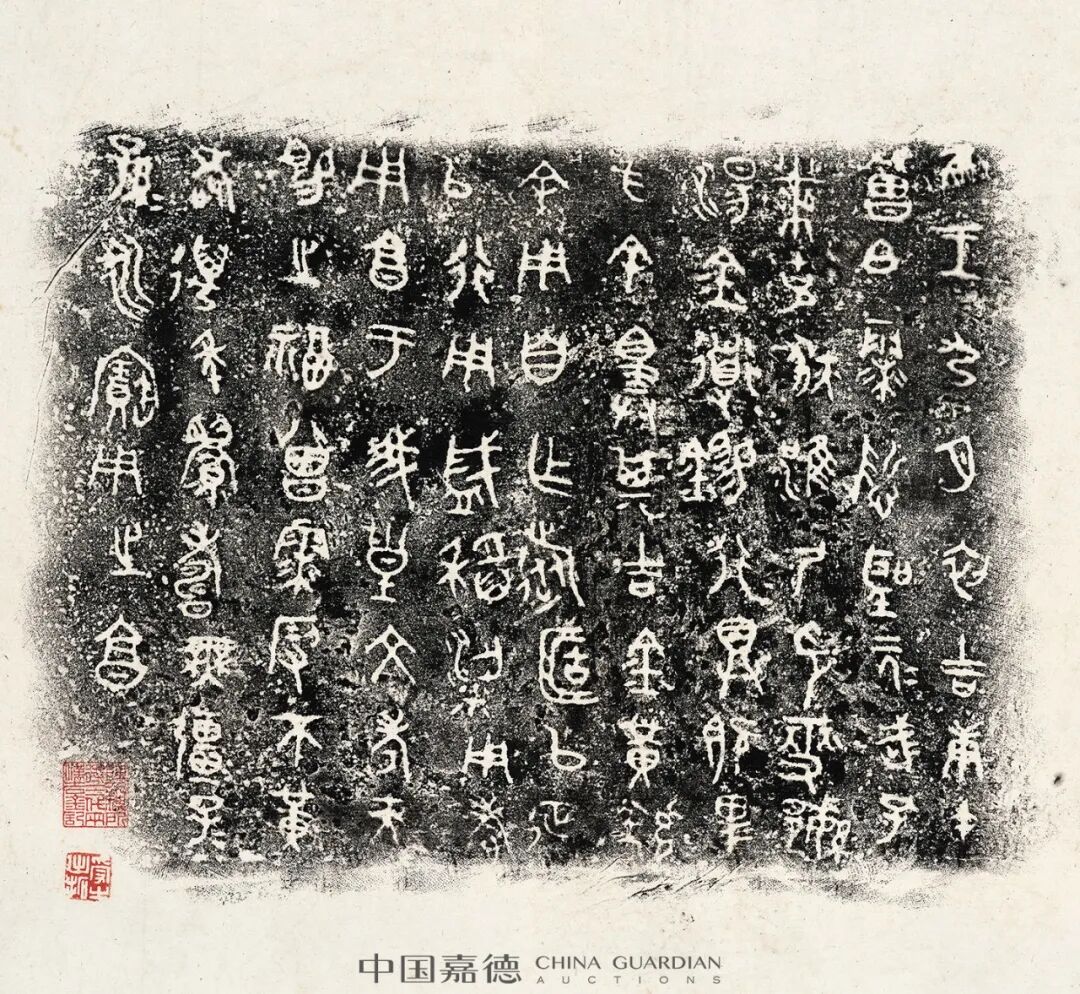 隹王九月初吉庚午
曾白霥哲聖元武孔
黹克狄淮尸卬燮繁
湯金道錫行具既卑
方余擇其吉金黃鑪
余用自乍旅𠤳以征
以行用盛稻粱用孝
用亯于我皇文考天
賜之福曾霥叚不黃
耇萬年眉壽無疆子
孫永寶用之亯
中国嘉德 CHINA GUARDIAN
AUCTIONS